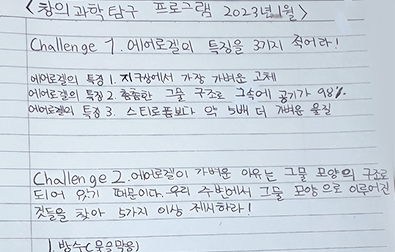 <창의과학탐구 프로그램 2023년 1월>
Challenge 1. 에어로겔의 특징을 3가지 적어라!
에어로겔의 특징 1. 지구상에서 가장 가벼운 고체
에어로겔의 특징 2. 촘촘한 그물 구조로 그속에 공기가 98%
에어로겔의 특징 3. 스티로폼보다 약 5배 더 가벼운 물질
Challenge 2. 에어로겔이 가벼운 이유는 그물 모양의 구조로
되어 있기 때문이다. 우리 주변에서 그물 모양으로 이루어진
것들을 찾아 5가지 이상 제시하라!
1. 방수(물을막음)